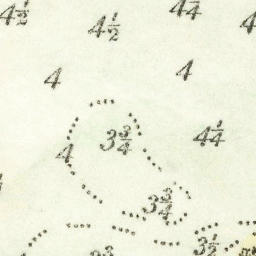 4½ 4½ 4¼
4 4
3¾ 4¼
4
3¾
3½